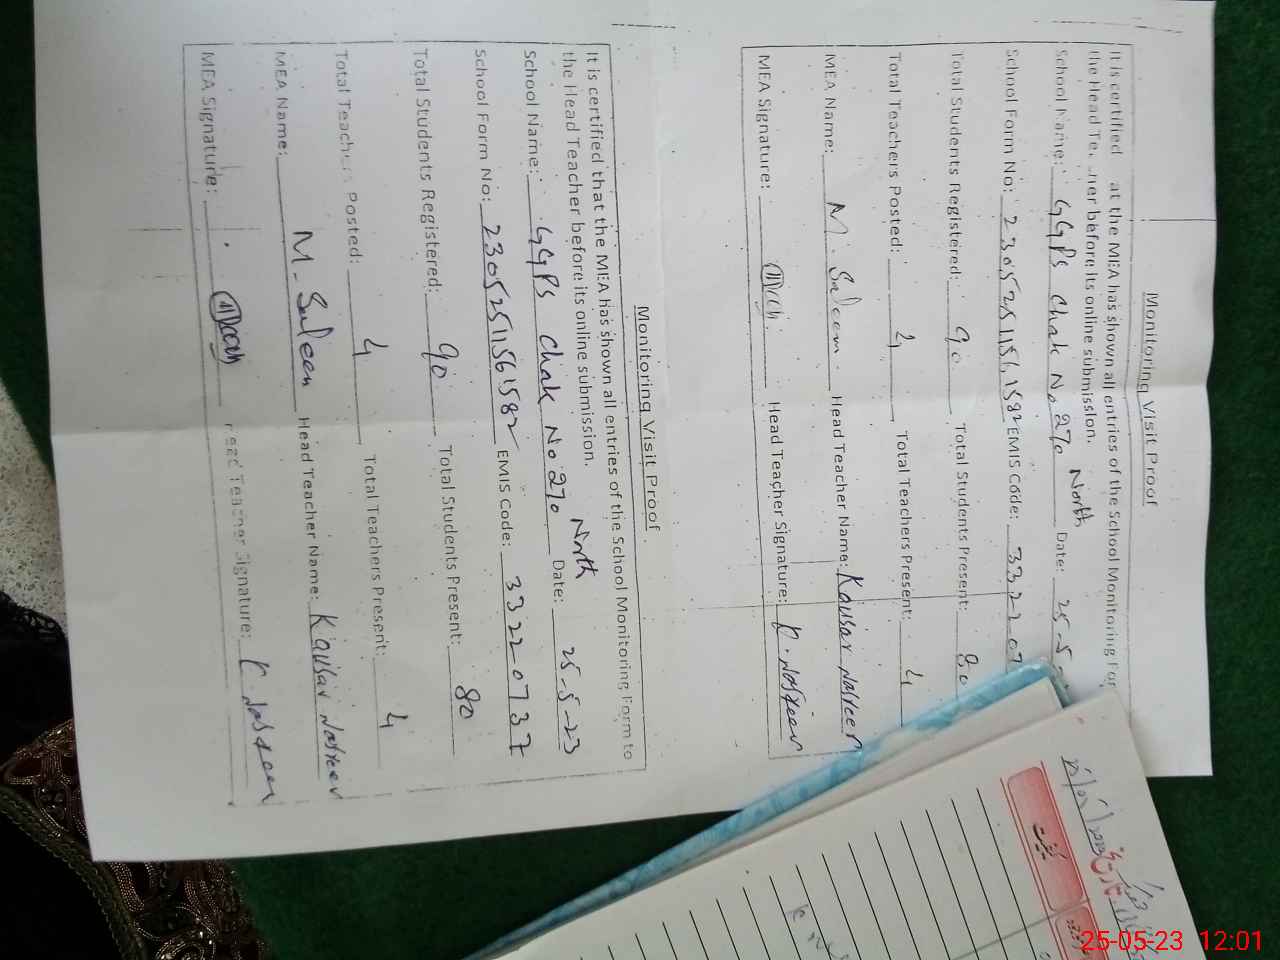 Monitoring Visit Proof
It is certified at the MEA has shown all entries of the School Monitoring For
the Head Te her before its online submission.
School Name: GGPS Chak No 270 North Date: 25-5-
School Form No: 23052511561582 EMIS Code: 332207
Total Students Registered: 90 Total Students Present: 80
Total Teachers Posted: 4 Total Teachers Present: 4
MEA Name: M. Saleem Head Teacher Name: Kausar Nasreen
MEA Signature: Head Teacher Signature: K. Nasreen
Monitoring Visit Proof
It is certified that the MEA has shown all entries of the School Monitoring Form to
the Head Teacher before its online submission.
School Name: GGPS Chak No 270 North Date: 25-5-23
School Form No: 23052511561582 EMIS Code: 33220737
Total Students Registered: 90 Total Students Present: 80
Total Teachers Posted: 4 Total Teachers Present: 4
MEA Name: M. Saleem Head Teacher Name: Kausar Nasreen
MEA Signature: Head Teacher Signature: K. Nasreen
25-05-23 12:01